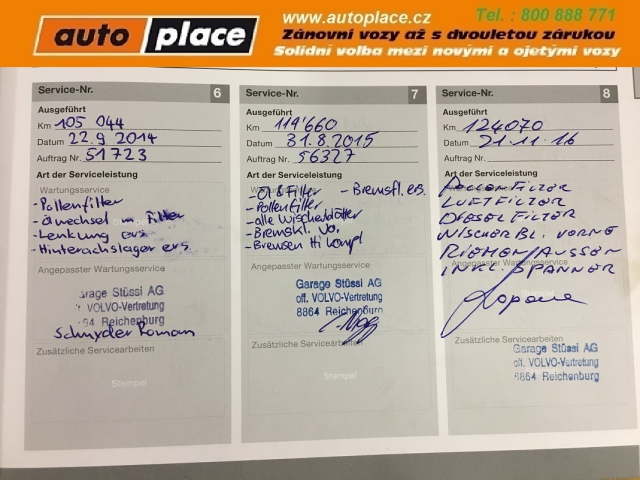 auto place
www.autoplace.cz
Tel. : 800 888 771
Zánovní vozy až s dvouletou zárukou
Solidní volba mezi novými a ojetými vozy
Service-Nr. 6
Ausgeführt
Km 105 044
Datum 22.9 2014
Auftrag Nr. 51723
Art der Serviceleistung
Wartungsservice
- Pollenfilter
- Ölwechsel m. Filter
- Lenkung ers
- Hinterachslager ers.
Angepasster Wartungsservice
Garage Stüssi AG
VOLVO-Vertretung
64 Reichenburg
Schnyder Roman
Zusätzliche Servicearbeiten
Stempel
Service-Nr. 7
Ausgeführt
Km 119'660
Datum 31.8.2015
Auftrag Nr. 56327
Art der Serviceleistung
- Öl & Filter - Bremsfl. ers.
- Pollenfilter
- alle Wischerblätter
- Bremskl. Vo.
- Bremsen Hi kompl
Angepasster Wartungsservice
Garage Stüssi AG
off. VOLVO-Vertretung
8864 Reichenburg
Zusätzliche Servicearbeiten
Stempel
Service-Nr. 8
Ausgeführt
Km 124070
Datum 21.11.16
Auftrag Nr.
Art der Serviceleistung
POLLENFILTER
LUFTFILTER
DIESELFILTER
WISCHERBL. VORNE
RIEMEN AUSSEN
INKL. SPANNER
Angepasster Wartungsservice
Zusätzliche Servicearbeiten
Garage Stüssi AG
off. VOLVO-Vertretung
8864 Reichenburg